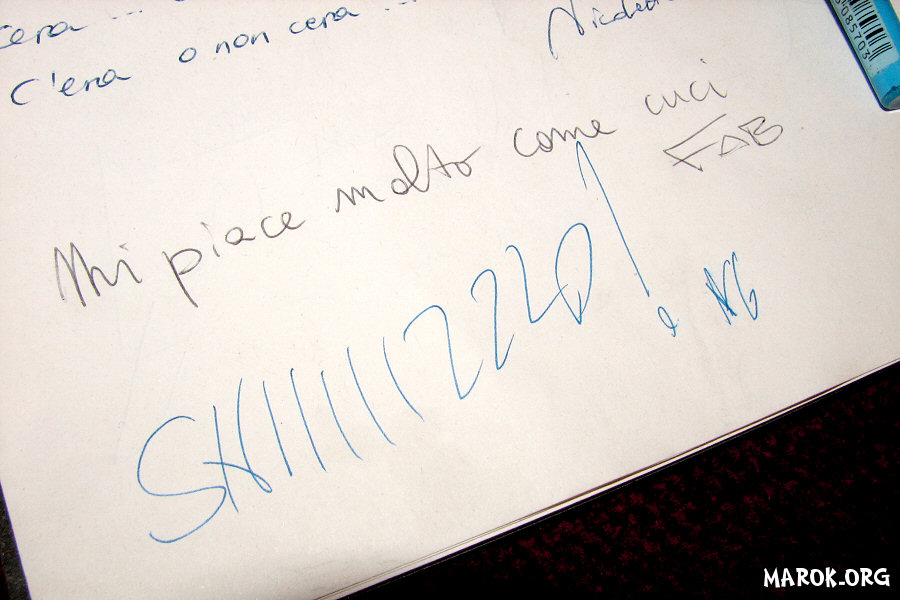 cera ...
C'era o non cera ...
Mi piace molto come cuci
FAB
SHIIIIIZZZO!
NG
085703
MAROK.ORG